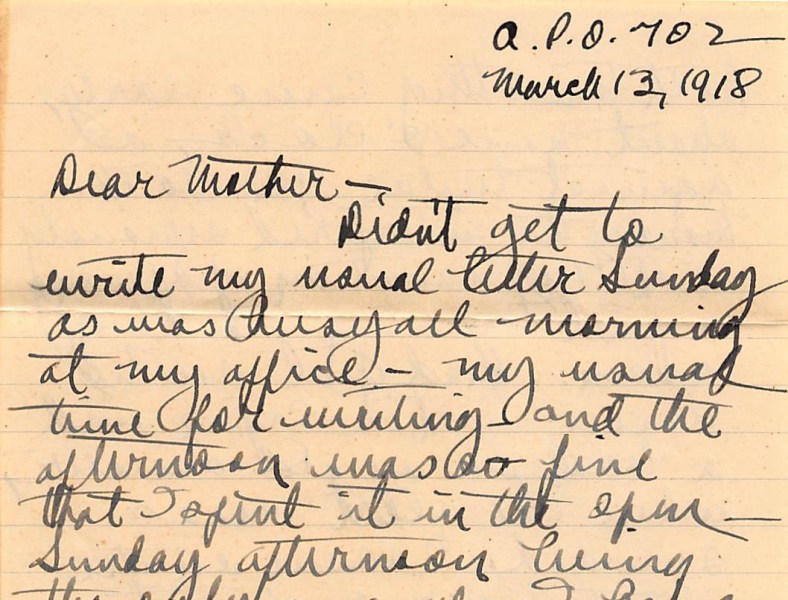 A.P.O. 702
March 13, 1918
Dear Mother —
Didn't get to
write my usual letter Sunday
as was busy all morning
at my office - my usual
time for writing - and the
afternoon was so fine
that I spent it in the open —
Sunday afternoon being
the only